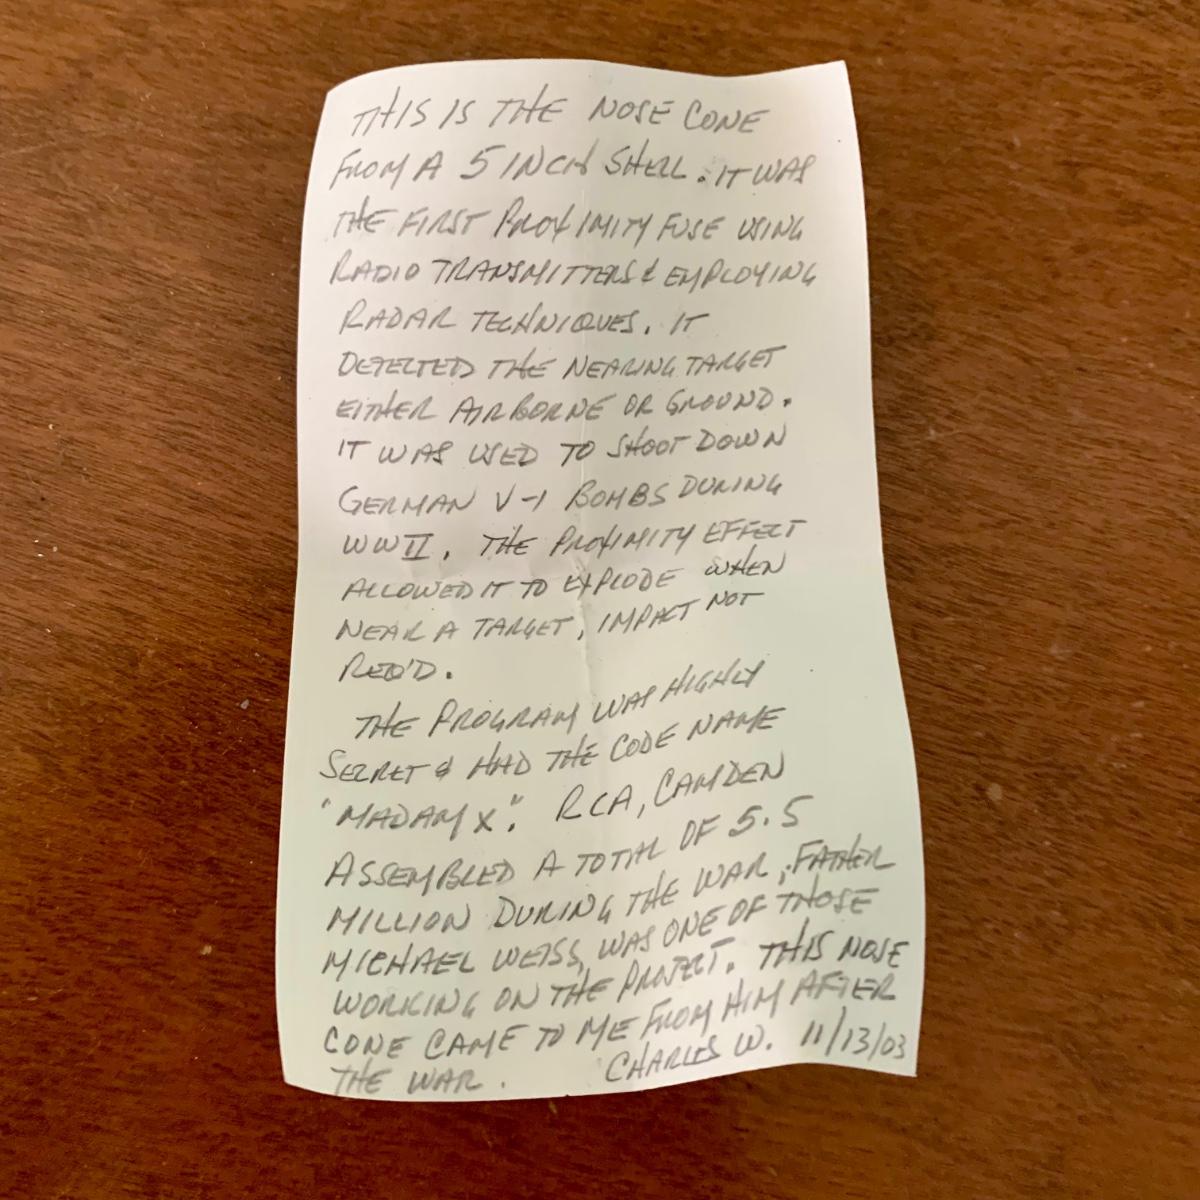 THIS IS THE NOSE CONE
FROM A 5 INCH SHELL. IT WAS
THE FIRST PROXIMITY FUSE USING
RADIO TRANSMITTERS & EMPLOYING
RADAR TECHNIQUES. IT
DETECTED THE NEARING TARGET
EITHER AIRBORNE OR GROUND.
IT WAS USED TO SHOOT DOWN
GERMAN V-1 BOMBS DURING
WWII. THE PROXIMITY EFFECT
ALLOWED IT TO EXPLODE WHEN
NEAR A TARGET, IMPACT NOT
REQ'D.
THE PROGRAM WAS HIGHLY
SECRET & HAD THE CODE NAME
"MADAM X". RCA, CAMDEN
ASSEMBLED A TOTAL OF 5.5
MILLION DURING THE WAR, FATHER
MICHAEL WEISS, WAS ONE OF THOSE
WORKING ON THE PROJECT. THIS NOSE
CONE CAME TO ME FROM HIM AFTER
THE WAR. CHARLES W. 11/13/03